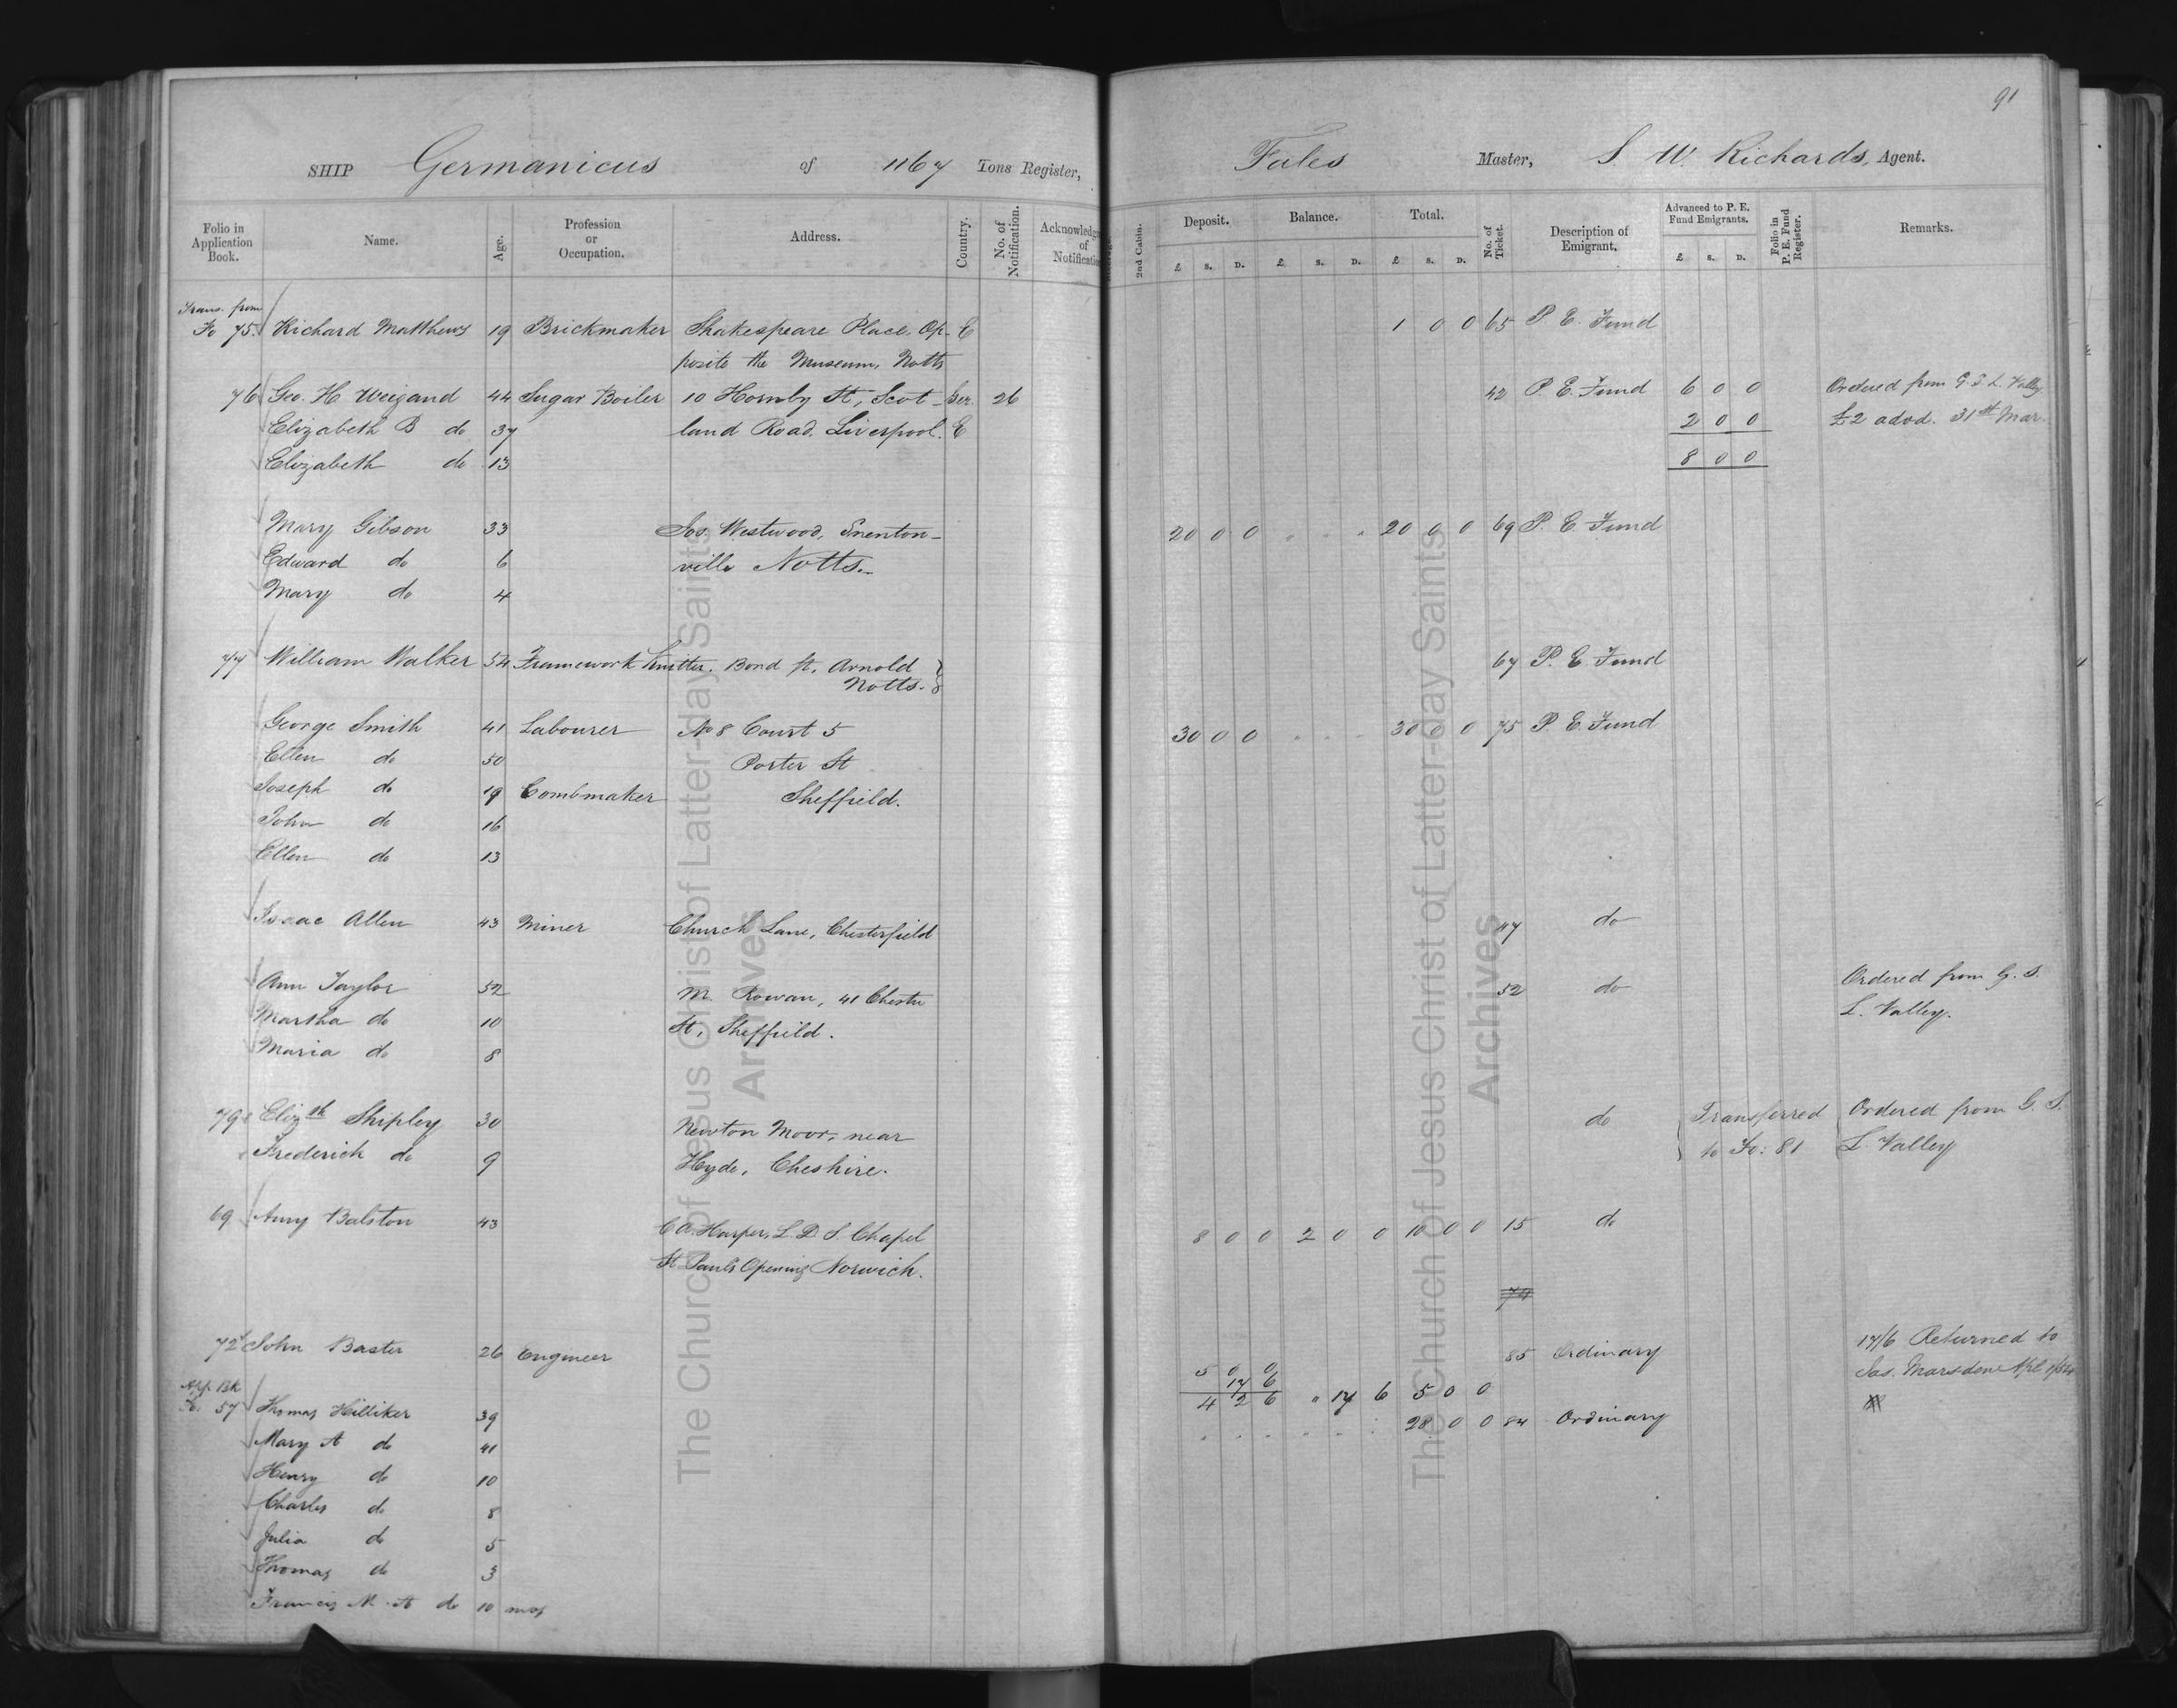 91
SHIP Germanicus of 1167 Tons Register, Fales Master, S. W. Richards, Agent.
Folio in Application Book. Name. Age. Profession or Occupation. Address. Country. No. of Notification. 2nd Cabin. Deposit. £ s. D. Balance. £ s. D. Total. £ s. D. No. of Ticket. Description of Emigrant. Advanced to P. E. Fund Emigrants. £ s. D. Folio in P. E. Fund Register. Remarks.
Trans. from
Fo 75. Richard Matthews 19 Brickmaker Shakespeare Place, Op- E 1 0 0 65 P. E. Fund
posite the Museum, Notts
76 Geo. H Weigand 44 Sugar Boiler 10 Hornby St, Scot- Ger. 26 42 P. E. Fund 6 0 0 Ordered from G. S. L. Valley
Elizabeth B do 37 land Road, Liverpool. E 2 0 0 £2 advd. 31st Mar.
Elizabeth do 13 8 0 0
Mary Gibson 33 Jos. Westwood, Snenton- 20 0 0 . . . 20 0 0 69 P. E. Fund
Edward do 6 ville Notts.
Mary do 4
77 William Walker 54 Framework Knitter. Bond St, Arnold 67 P. E. Fund
Notts.
George Smith 41 Labourer No 8 Court 5 30 0 0 . . . 30 0 0 75 P. E. Fund
Ellen do 50 Porter St
Joseph do 19 Combmaker Sheffield.
John do 16
Ellen do 13
Isaac Allen 43 Miner Church Lane, Chesterfield 47 do
Ann Taylor 52 M. Rowan, 41 Chester 52 do Ordered from G. S.
Martha do 10 St, Sheffield. L. Valley.
Maria do 8
79 Elizth Shipley 30 Newton Moor, near do Transferred Ordered from G. S.
Frederick do 9 Hyde, Cheshire. to Fo: 81 L. Valley
69 Amy Balston 43 C A. Harper, L. D. S. Chapel 8 0 0 2 0 0 10 0 0 15 do
St Pauls Opening Norwich.
74
72 John Baster 26 Engineer 85 Ordinary 17/6 Returned to
5 0 0 Jas. Marsden
17 6
App. Bk 4 2 6 " 17 6 5 0 0
Fo. 57 Thomas Hilliker 39 . . . . . . 28 0 0 84 Ordinary
Mary A do 41
Henry do 10
Charles do 8
Julia do 5
Thomas do 3
Francis M. A do 10 mos
The Church of Jesus Christ of Latter-day Saints
Archives
The Church of Jesus Christ of Latter-day Saints
Archives